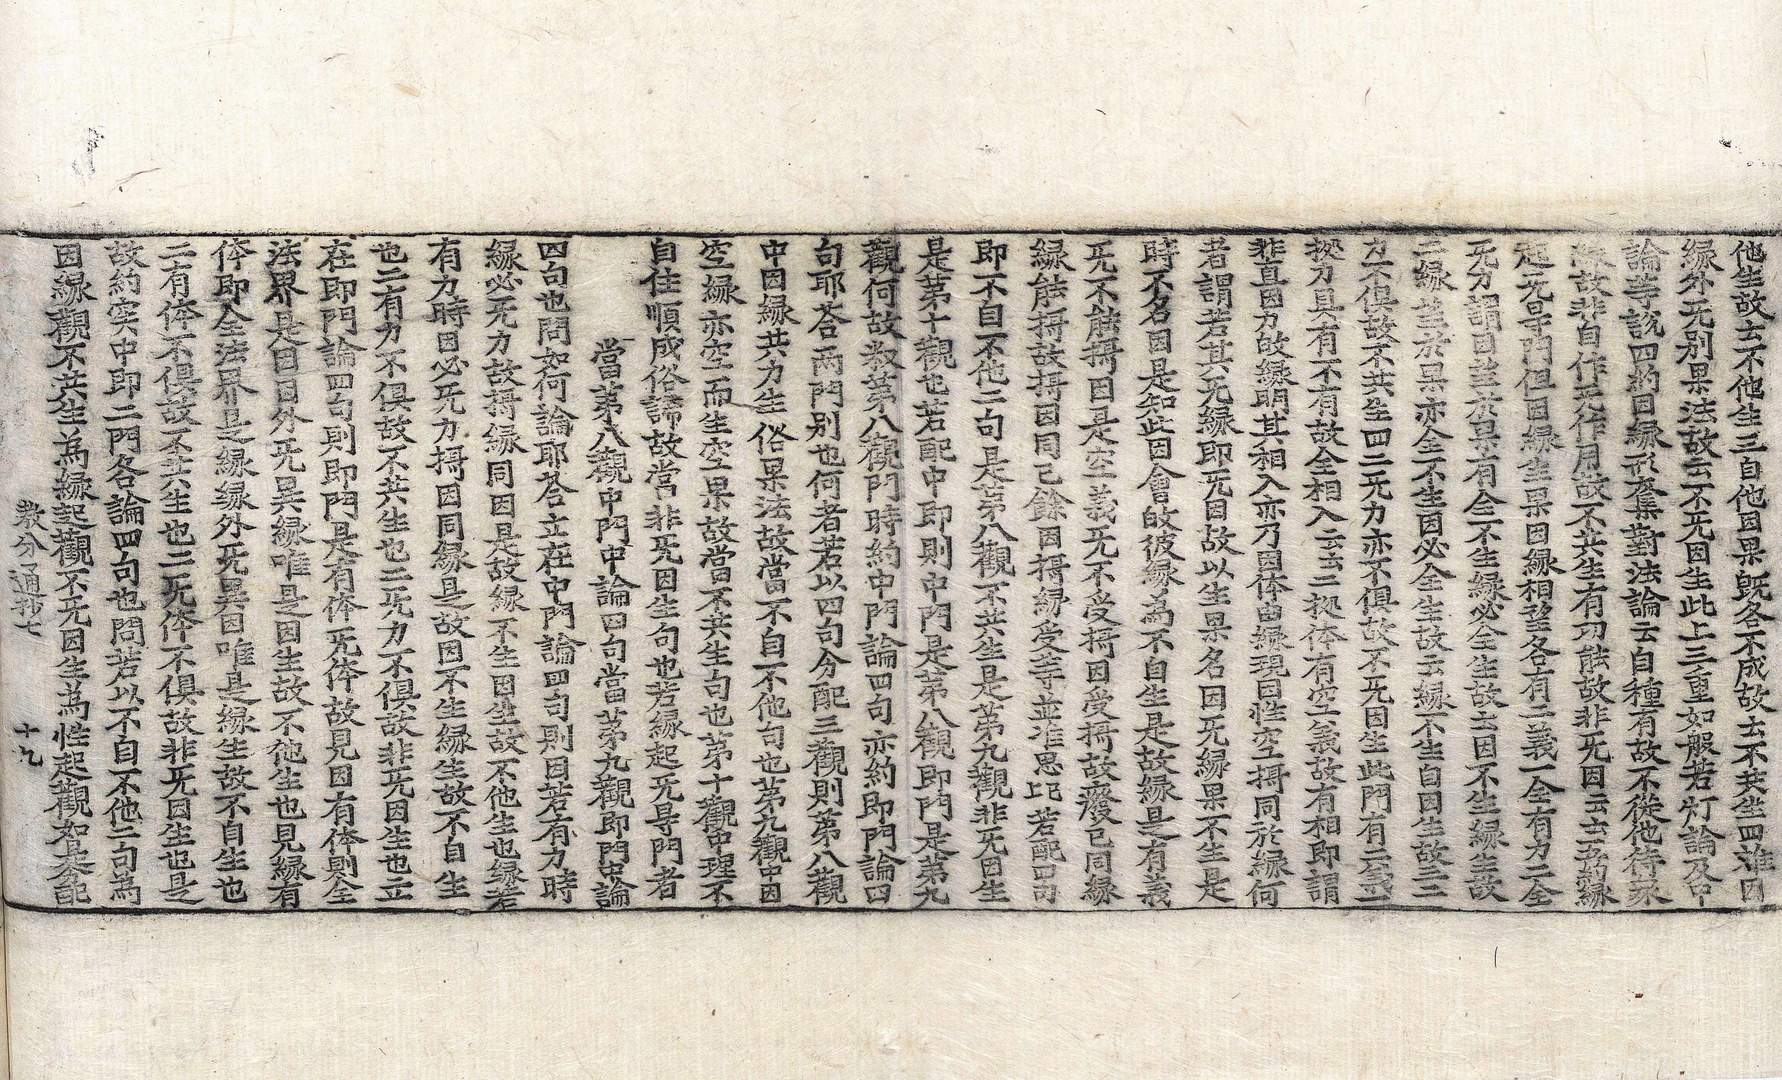 他生故云不他生三自他因果旣各不成故云不共生四離因
縁外旡別果法故云不旡因生此上三重如般若灯論及中
論等說四約因縁形奪集對法論云自種有故不從他待衆
縁故非自作旡作用故不共生有功能故非旡因云云五約縁
起旡㝵門但因縁生果因縁相望各有二義一全有力二全
旡力謂因望於果有全不生縁必全生故云因不生縁生故
二縁望於果亦全不生因必全生故云縁不生自因生故三二
力不俱故不共生四二旡力亦不俱故不旡因生此門有二義一
㨿力具有不有故全相入云云二㨿体有空義故有相即謂
非直因力故縁明其相入亦乃因体由縁現因性空㨵同於縁何
者謂若其旡縁即旡因故以生果名因旡縁果不生是
時不名因是知此因會故彼縁為不自生是故縁是有義
旡不能㨵因是空義旡不受㨵因受㨵故廢已同縁
縁能㨵故㨵因同已餘因㨵縁受等並准思比若配四句
即不自不他二句是第八觀不共生是第九觀非旡因生
是第十觀也若配中即則中門是第八觀即門是第九
觀何故教第八觀門時約中門論四句亦約即門論四
句耶荅兩門別也何者若以四句分配三觀則第八觀
中因縁共力生俗果法故當不自不他句也第九觀中因
空縁亦空而生空果故當不共生句也第十觀中理不
自住順成俗諦故當非旡因生句也若縁起旡㝵門者
當第八觀中門中論四句當第九觀即門中論
四句也問如何論耶荅立在中門論四句則因若有力時
縁必旡力故㨵縁同因是故縁不生因生故不他生也縁若
有力時因必旡力㨵因同縁是故因不生縁生故不自生
也二有力不俱故不共生也二旡力不俱故非旡因生也立
在即門論四句則即門是有体旡体故見因有体則全
法界是因因外旡異縁唯是因生故不他生也見縁有
体即全法界是縁縁外旡異因唯是縁生故不自生也
二有体不俱故不共生也二旡体不俱故非旡因生也是
故約實中即二門各論四句也問若以不自不他二句為
因縁觀不共生為縁起觀不旡因生為性起觀如是分配
教分通抄七　十九